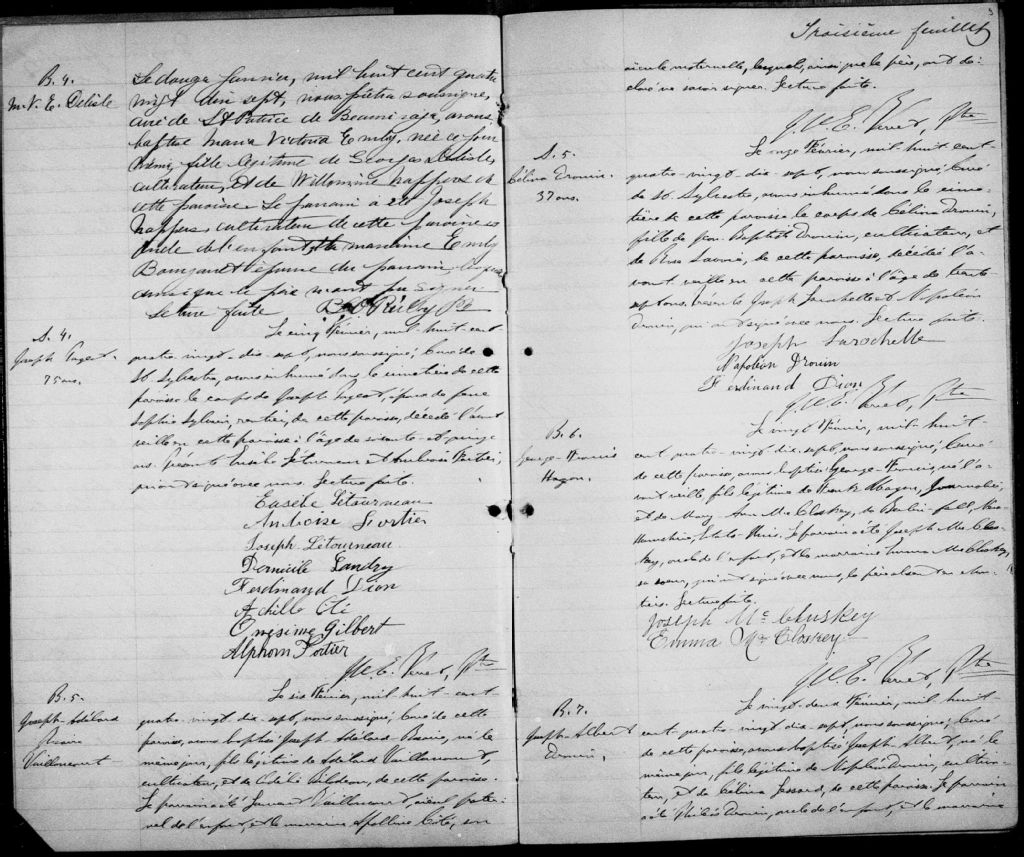 B. 4.
M. V. E. Delisle
Le douze Janvier, mil huit cent quatre
vingt dix sept, nous prêtre soussigné,
curé de St Patrice de Beaurivage, avons
baptisé Maria Victoria Emily, née ce jour
même, fille légitime de Georges Delisle,
cultivateur, et de Willomine Nappers de
cette paroisse. Le parrain a été Joseph
Nappers cultivateur de cette paroisse
oncle de l'enfant, la marraine Emily
épouse du parrain lesquels
ainsi que le père n'ont pu signer
Lecture faite
S. 4.
Joseph
75 ans.
Le cinq Février, mil huit cent
quatre-vingt-dix-sept, nous soussigné, Curé de
St. Sylvestre, avons inhumé dans le cimetière de cette
paroisse le corps de Joseph, époux de feue
Sophie Sylvain, rentier, de cette paroisse, décédé l'avant
veille en cette paroisse à l'âge de soixante-et-quinze
ans. Présents Eusèbe Létourneau et Ambroise Fortier,
qui ont signé avec nous. Lecture faite.
Eusèbe Létourneau
Amboise Fortier
Joseph Létourneau
Landry
Ferdinand Dion
Achille Coté
Onésime Gilbert
Ptre
B. 5.
Joseph-Adélard
Vaillancourt
Le six Février, mil huit cent
quatre-vingt-dix-sept, nous soussigné, Curé de cette
paroisse, avons baptisé Joseph Adélard, né le
même jour, fils légitime de Adélard Vaillancourt,
cultivateur, et de Bilodeau, de cette paroisse.
Le parrain a été Vaillancourt, aïeul pater-
nel de l'enfant, et la marraine Apolline Coté, son
Troisième feuillet
3
aïeule maternelle, lesquels, ainsi que le père, ont dé-
claré ne savoir signer. Lecture faite.
Ptre
S. 5.
Célina Drouin.
37 ans.
Le onze Février, mil huit cent-
quatre-vingt-dix-sept, nous soussigné, Curé
de St. Sylvestre, avons inhumé dans le cime-
tière de cette paroisse le corps de Célina Drouin,
fille de Jean-Baptiste Drouin, cultivateur, et
de Rose Savoie, de cette paroisse, décédée l'a-
vant veille en cette paroisse à l'âge de trente-
sept ans. Présents Joseph Larochelle et Napoléon
Drouin, qui ont signé avec nous. Lecture faite.
Joseph Larochelle
Napoléon Drouin
Ferdinand Dion
Ptre
B. 6.
George-Francis
Hagon.
Le vingt Février, mil huit-
cent quatre-vingt-dix-sept, nous soussigné, Curé
de cette paroisse, avons baptisé George-Francis, né l'a-
vant veille fils légitime de Frank Hagon, Journalier,
et de Mary-Ann McCloskey, de Berlin-fall, New
Hampshire, Etats-Unis. Le parrain a été Joseph McClos-
key, oncle de l'enfant, et la marraine Emma McCloskey,
sa soeur, qui ont signé avec nous, le père absent
Lecture faite.
Joseph Mc Cluskey
Emma Mc Closkey
Ptre
B. 7.
Joseph Albert
Drouin,
Le vingt deux Février, mil huit-
cent-quatre-vingt-dix-sept, nous soussigné, Curé
de cette paroisse, avons baptisé Joseph Albert, né le
même jour, fils légitime de Napoléon Drouin, cultiva-
teur, et de Célina Lessard, de cette paroisse. Le parrain
a été Drouin, oncle de l'enfant, et la marraine